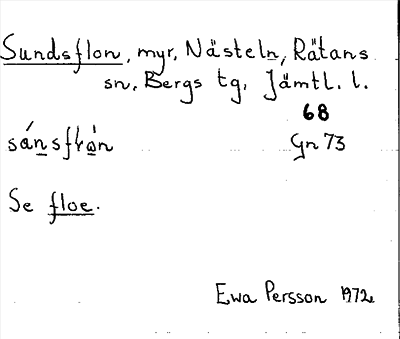 Sundsflon, myr, Nästeln, Rätans
sn, Bergs tg, Jämtl. l.
68
Gn 73
Se floe.
Ewa Persson 1972